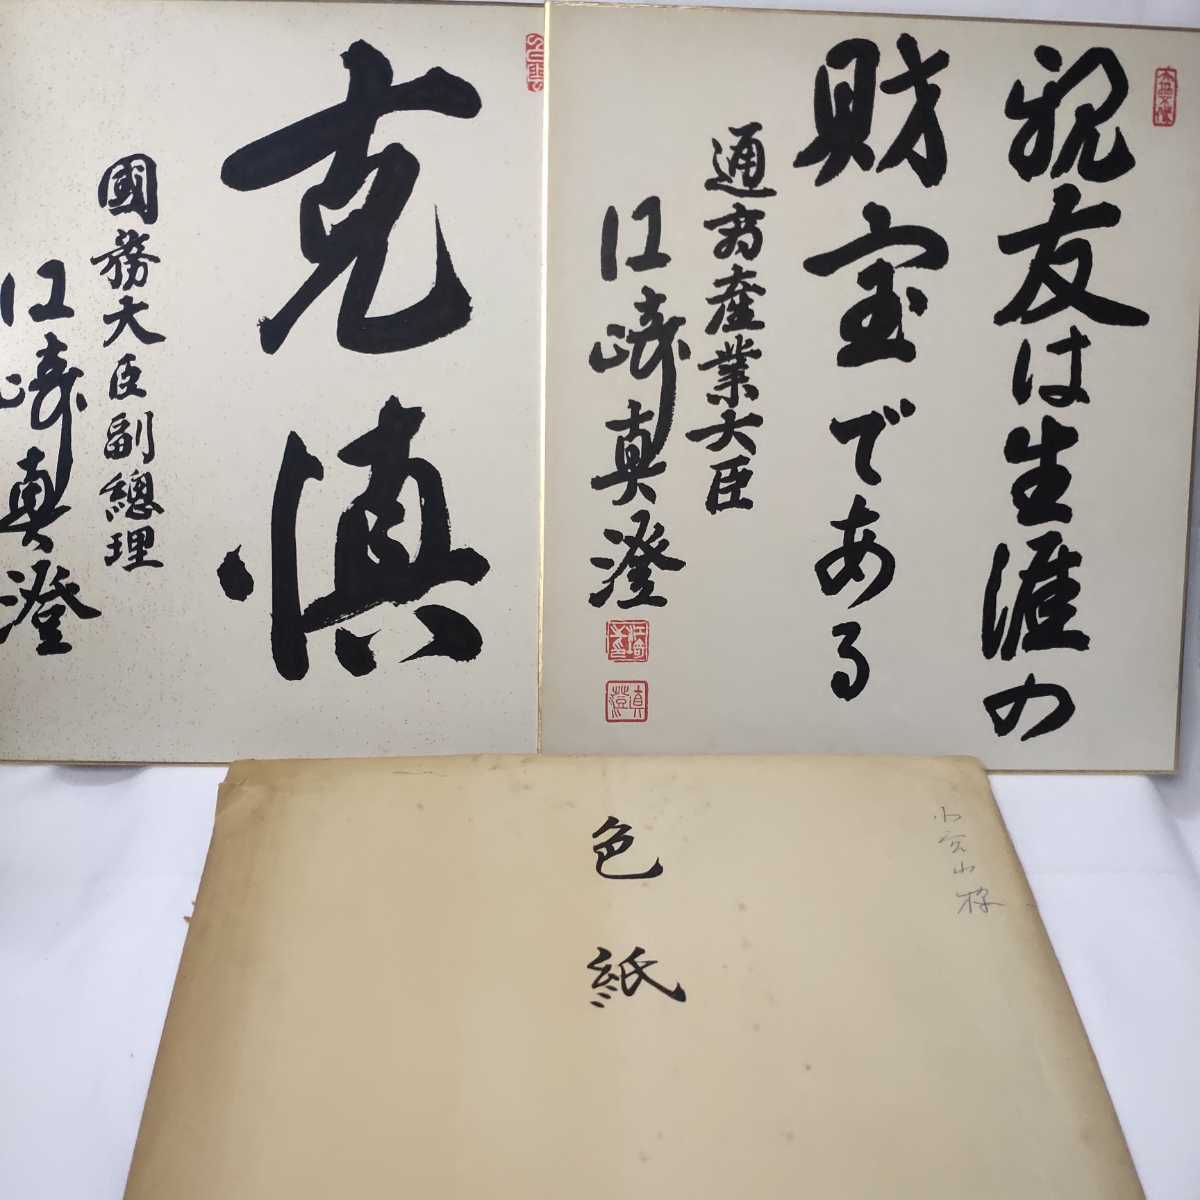 親友は生涯の
財宝である
通商産業大臣
江崎真澄
江崎
真澄
克慎
國務大臣副總理
江崎真澄
色紙